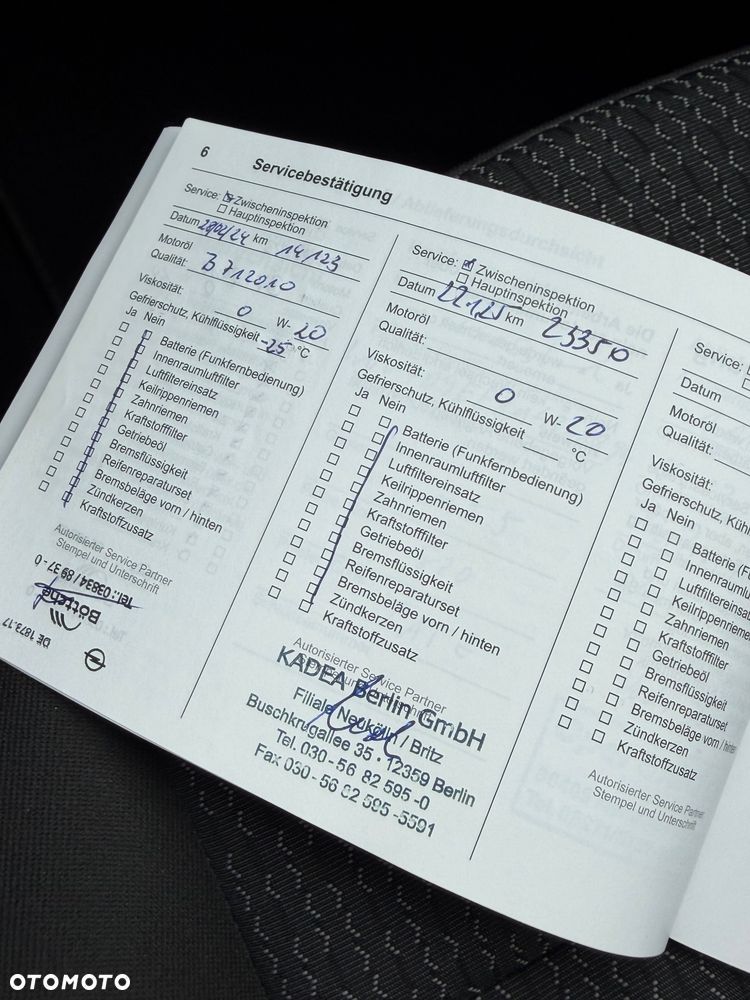 6
Servicebestätigung
Service: Zwischeninspektion
Hauptinspektion
Datum 28/02/24 km 14123
Motoröl
Qualität: B712010
Viskosität: 0 W- 20
Gefrierschutz, Kühlflüssigkeit -25 °C
Ja Nein
Batterie (Funkfernbedienung)
Innenraumluftfilter
Luftfiltereinsatz
Keilrippenriemen
Zahnriemen
Kraftstofffilter
Getriebeöl
Bremsflüssigkeit
Reifenreparaturset
Bremsbeläge vorn / hinten
Zündkerzen
Kraftstoffzusatz
Autorisierter Service Partner
Stempel und Unterschrift
Tel.: 03834 / 89 37-0
Böttche
DE 1873.17
Service: Zwischeninspektion
Hauptinspektion
Datum 22.1.25 km 25350
Motoröl
Qualität:
Viskosität: 0 W- 20
Gefrierschutz, Kühlflüssigkeit °C
Ja Nein
Batterie (Funkfernbedienung)
Innenraumluftfilter
Luftfiltereinsatz
Keilrippenriemen
Zahnriemen
Kraftstofffilter
Getriebeöl
Bremsflüssigkeit
Reifenreparaturset
Bremsbeläge vorn / hinten
Zündkerzen
Kraftstoffzusatz
Autorisierter Service Partner
KADEA Berlin GmbH
Filiale Neukölln / Britz
Buschkrugallee 35 · 12359 Berlin
Tel. 030 - 56 82 595 -0
Fax 030 - 56 82 595 -5591
Service:
Datum
Motoröl
Qualität:
Viskosität:
Gefrierschutz, Küh
Ja Nein
Batterie (F
Innenrauml
Luftfiltereins
Keilrippenrie
Zahnriemen
Kraftstofffilter
Getriebeöl
Bremsflüssigkeit
Reifenreparaturset
Bremsbeläge vorn / hinten
Zündkerzen
Kraftstoffzusatz
Autorisierter Service Partner
Stempel und Unterschrift
OTOMOTO